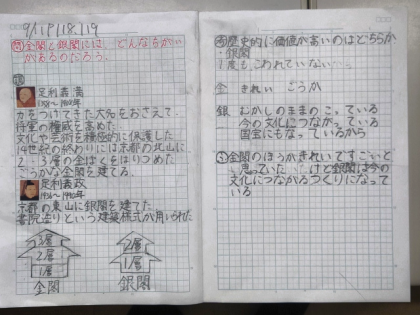 9/11 P118.119
問 金閣と銀閣には、どんなちがい
があるのだろう。
足利義満
力をつけてきた大名をおさえて、
将軍の権威を高めた
文化や芸術を積極的に保護した
14世紀の終わりには京都の北山に
2・3層の金ぱくをはりつめた
ごうかな金閣を建てる。
足利義政
京都の東山に銀閣を建てた。
書院造りという建築様式が用いられた
3層
2層
1層
金閣
2層
1層
銀閣
歴史的に価値が高いのはどちらか
・銀閣
1度も、こわれていない
金 きれい ごうか
銀 むかしのままのこっている
今の文化につながっている
国宝にもなっているから
金閣のほうがきれいですごいと
思っていた けど銀閣は今の
文化につながるつくりになって
いる